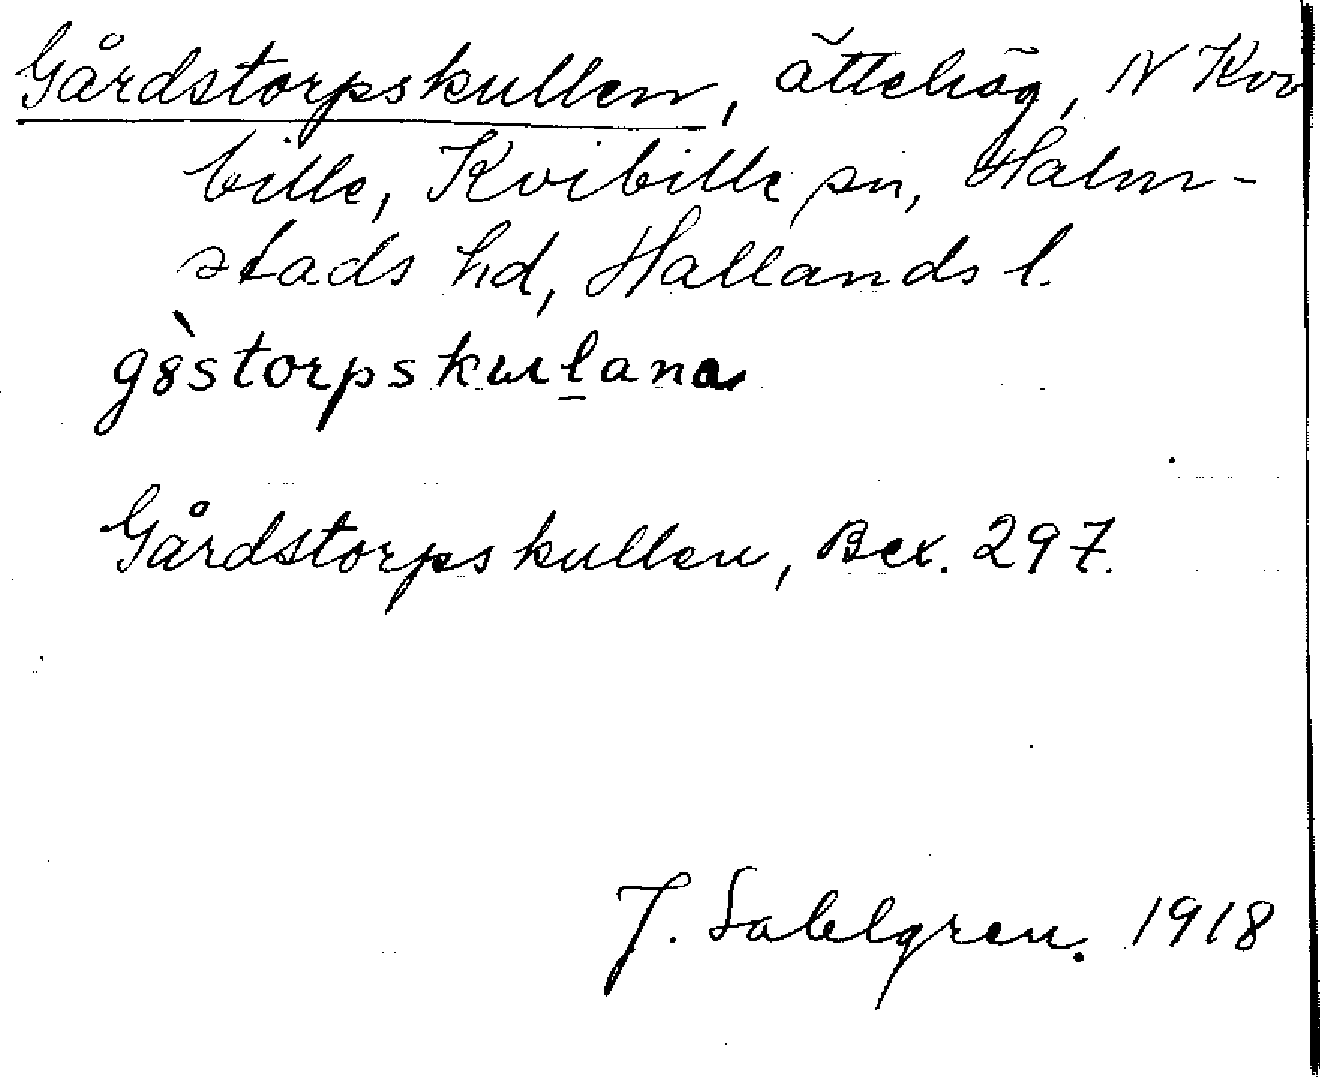 Gårdstorpskullen, ättehög, N Kvi
bille, Kvibille sn, Halm-
stads hd, Hallands l.
gòstorpskuḻana
Gårdstorpskullen, Bex. 297.
J. Sahlgren. 1918